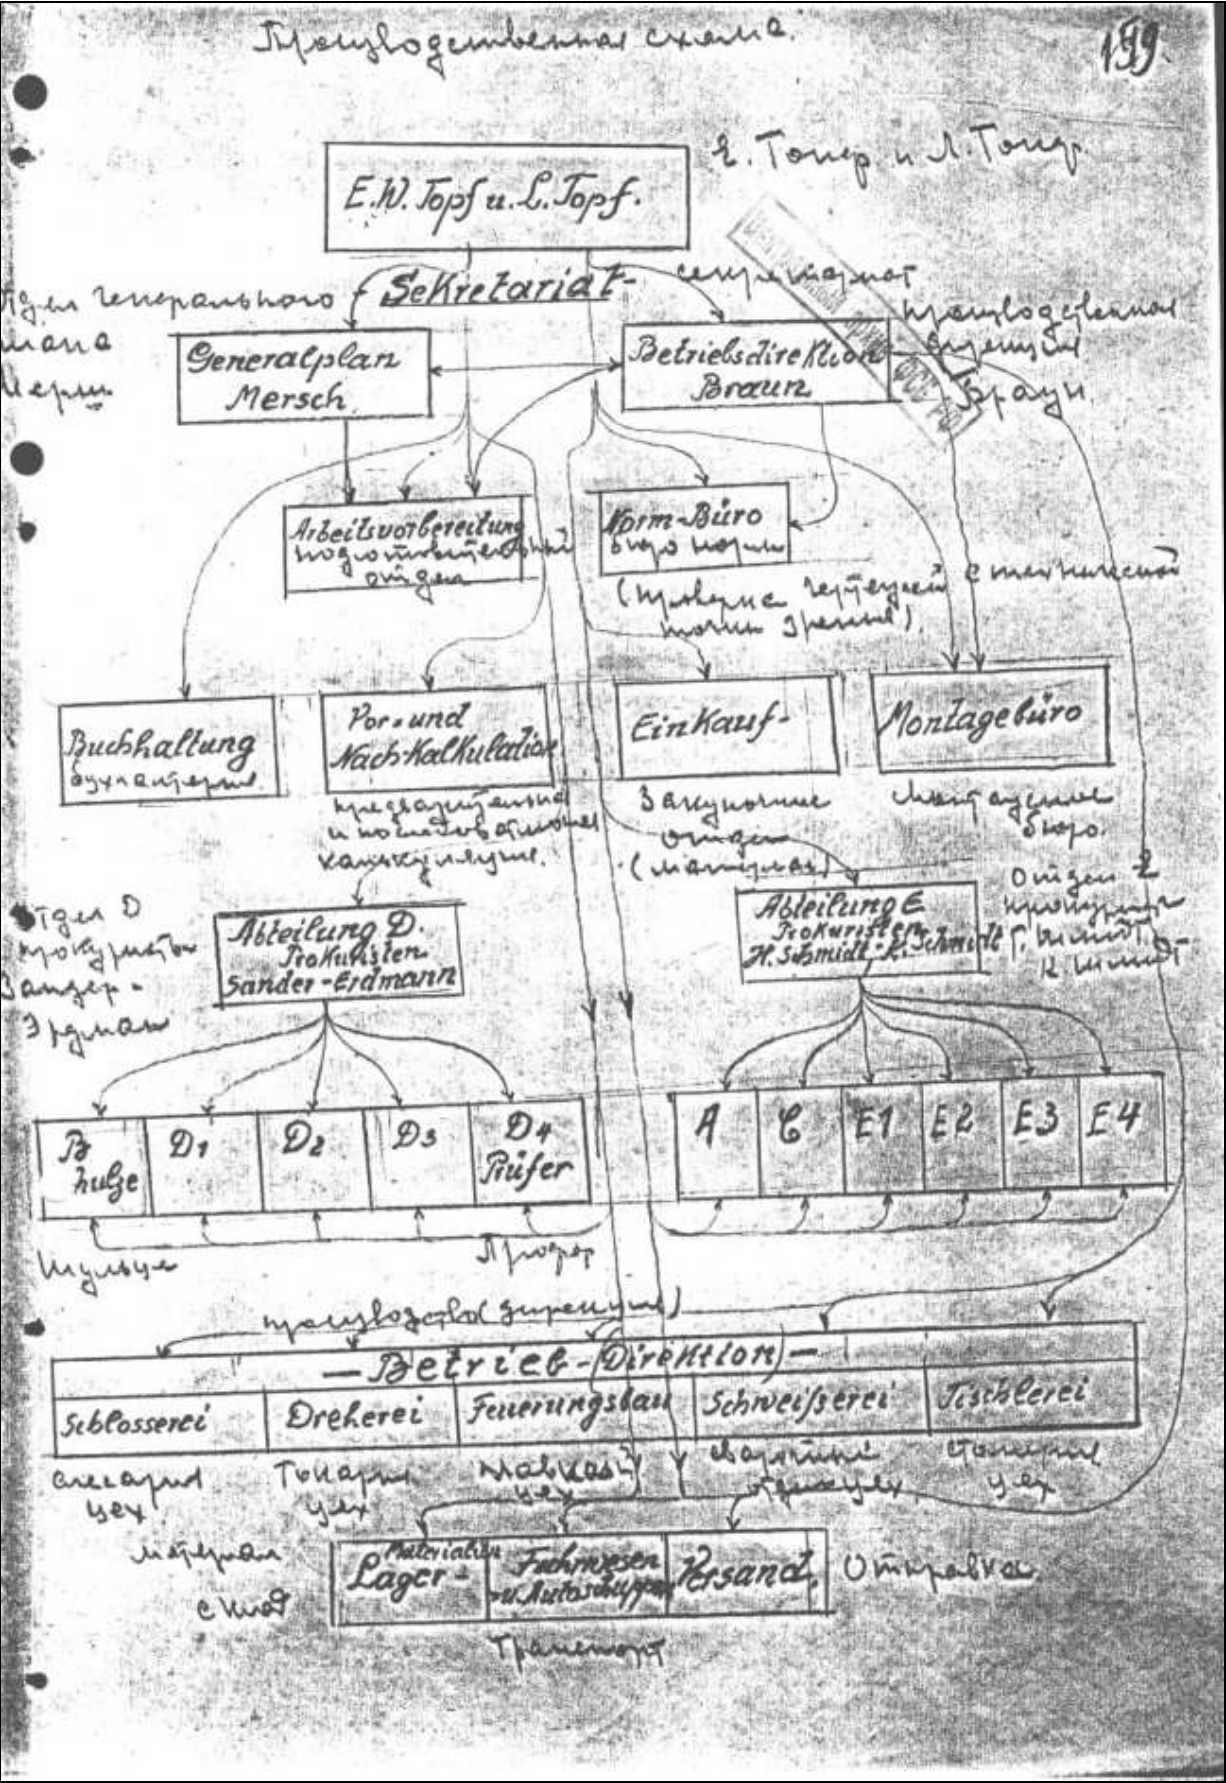 Производственная схема.
199.
E.W. Topf u. L. Topf.
Е. Топф и Л. Топф.
Sekretariat-
секретариат
Отдел Генерального
плана
Мерш
Generalplan
Mersch.
Betriebsdirektion
Braun
производственная
дирекция
Браун.
Arbeitsvorbereitung
подготовительный
отдел
Norm-Büro
бюро норм
(проверка чертежей с технической
точки зрения).
Buchhaltung
бухгалтерия.
Vor- und
Nach-Kalkulation
предварительная
и последовательная
калькуляция.
Einkauf-
Закупочные
отдел
(материал)
Montagebüro
Монтажное
бюро.
Отдел D
прокуристы
Зандер-
Эрдман
Abteilung D.
Prokuristen
Sander-Erdmann
Abteilung E
Prokuristen
H. Schmidt-K. Schmidt
Отдел E
прокуристы
Г. Шмидт.
К Шмидт
B
hulze
D1
D2
D3
D4
Prüfer
A
C
E1
E2
E3
E4
Шульце
Прюфер
производство (дирекция)
— Betrieb-(Direktion) —
Schlosserei
Dreherei
Feuerungsbau
Schweißerei
Tischlerei
слесарня
цех
Токарня
цех
цех
сварочный
столярня
цех
материал
склад
Materialien
Lager-
Fuhrwesen
u. Autoschuppen
Versand.
Отправка.
Транспорт